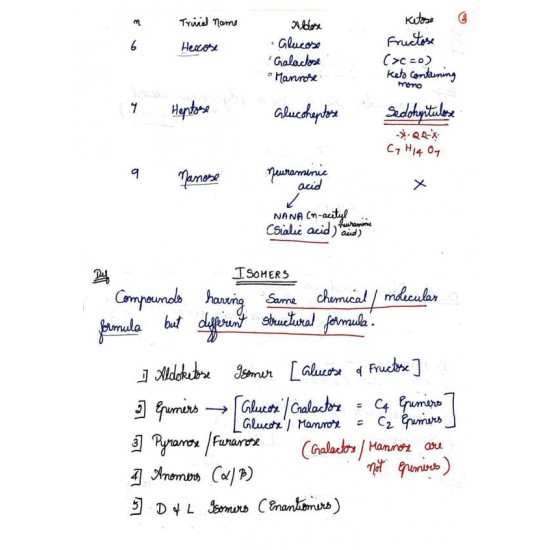 n Trivial Name Aldose Ketose 3
6 Hexose • Glucose Fructose
• Galactose (>C=O)
• Mannose Keto containing
mono
7 Heptose Glucoheptose Sedoheptulose
C7 H14 O7
9 Nanose Neuraminic ×
acid
NANA (n-acetyl
(Sialic acid) neuraminic
acid)
Def ISOMERS
Compounds having same chemical/molecular
formula but different structural formula.
1] Aldoketose Isomer [Glucose & Fructose]
2] Epimers → [Glucose/Galactose = C4 Epimers
Glucose/Mannose = C2 Epimers]
3] Pyranose/Furanose (Galactose/Mannose are
not Epimers)
4] Anomers (α/β)
5] D & L Isomers (Enantiomers)